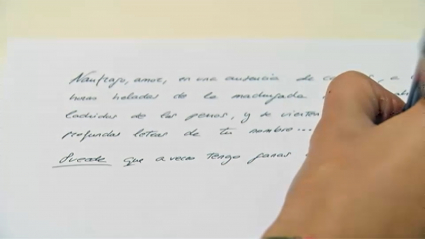 Naufrago, amor, en una ausencia de a
horas heladas de la madrugada
de las penas, y se vierten
profundas letras de tu nombre...
Sucede que a veces tengo ganas